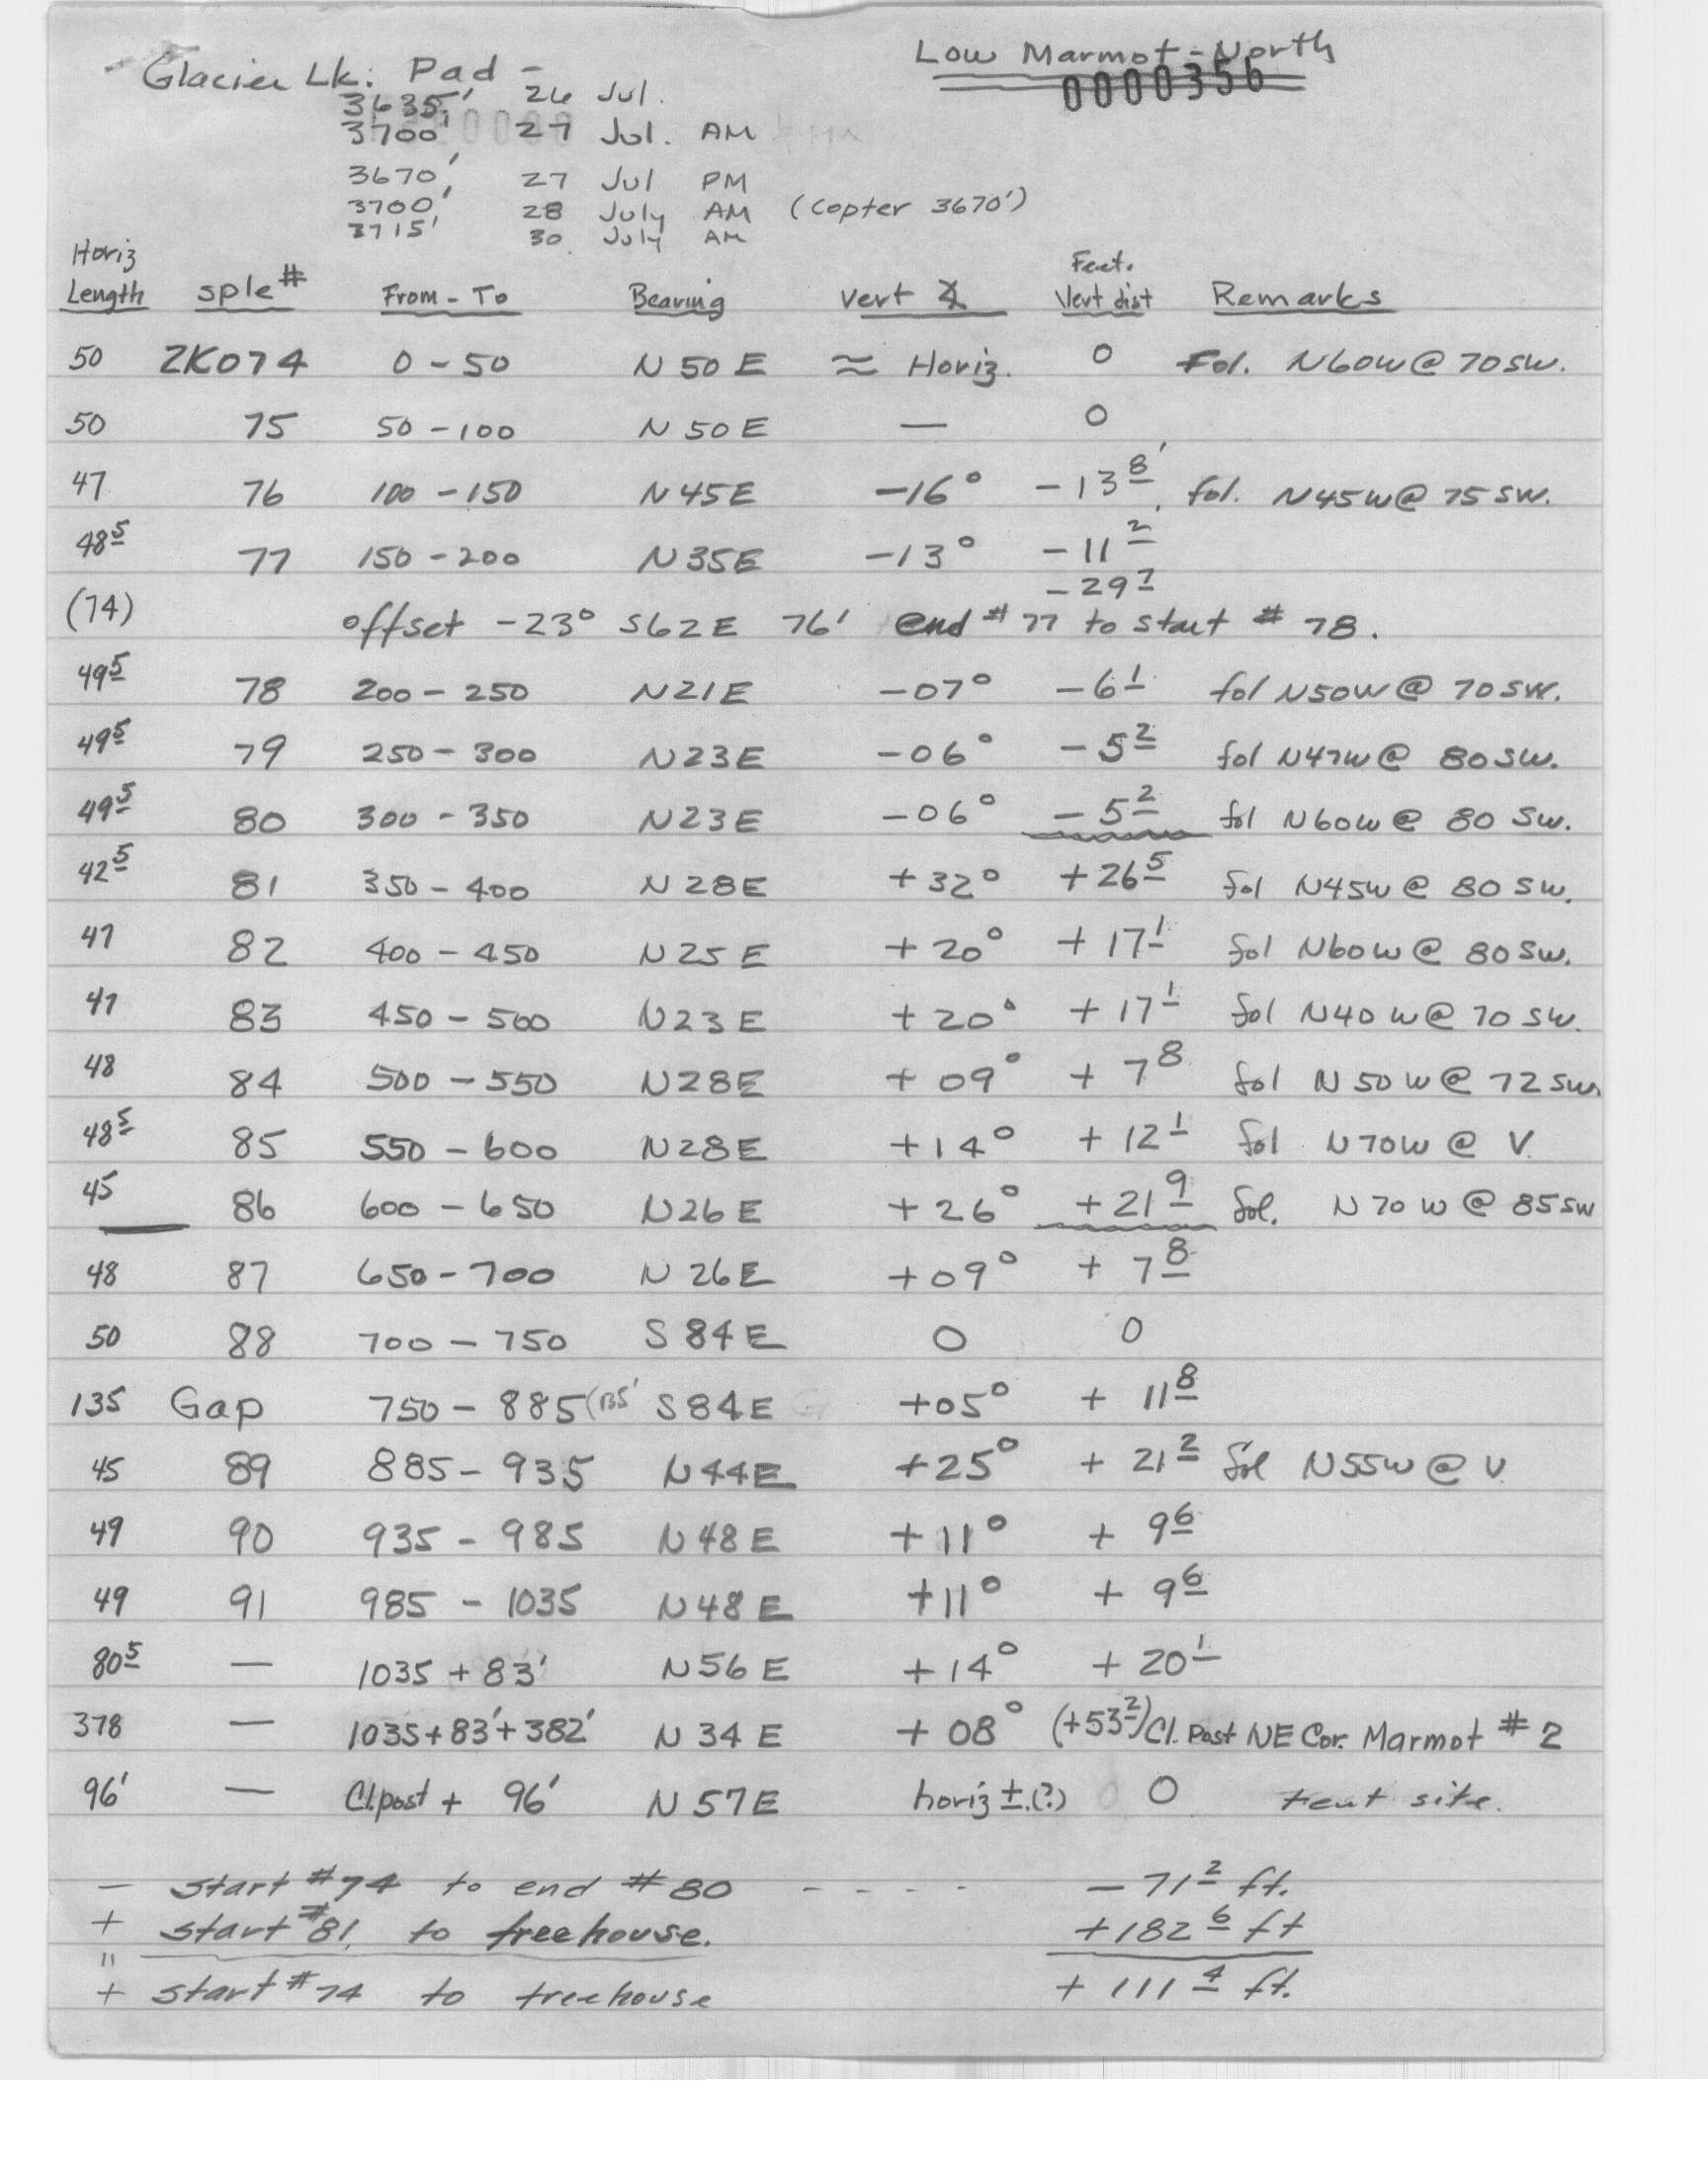 Low Marmot - North
0000356
Glacier Lk: Pad -
3635' 26 Jul.
3700' 27 Jul. AM
3670' 27 Jul PM
3700' 28 July AM (copter 3670')
3715' 30 July AM
Horiz Length sple# From - To Bearing Vert ∡ Feet. Vert dist Remarks
50 ZK074 0 - 50 N 50 E ≈ Horiz. 0 Fol. N60W @ 70SW.
50 75 50 - 100 N 50 E — 0
47 76 100 - 150 N45E -16° -13 8' fol. N45W@ 75SW.
48 5 77 150 - 200 N35E -13° -11 2
-29 7
(74) offset -23° S62E 76' end #77 to start # 78.
49 5 78 200 - 250 N21E -07° -6 1 fol N50W @ 70SW.
49 5 79 250 - 300 N23E -06° -5 2 fol N47W@ 80SW.
49 5 80 300 - 350 N23E -06° -5 2 fol N60W@ 80 SW.
42 5 81 350 - 400 N 28E +32° +26 5 fol N45W@ 80 SW.
47 82 400 - 450 N25 E +20° +17 1 fol N60W@ 80SW.
47 83 450 - 500 N23 E +20° +17 1 fol N40 W@ 70 SW.
48 84 500 - 550 N28E +09° +7 8 fol N 50 W@ 72SW.
48 5 85 550 - 600 N28E +14° +12 1 fol N70W @ V.
45 86 600 - 650 N26E +26° +21 9 fol. N 70 W @ 85SW
48 87 650 - 700 N 26E +09° +7 8
50 88 700 - 750 S 84E 0 0
135 Gap 750 - 885 (135' S84E +05° +11 8
45 89 885 - 935 N44E +25° +21 2 fol N55W@ V.
49 90 935 - 985 N48E +11° +9 6
49 91 985 - 1035 N48E +11° +9 6
80 5 — 1035 + 83' N56E +14° +20 1
378 — 1035+83'+382' N 34 E +08° (+53 2) Cl. Post NE Cor. Marmot # 2
96' — Cl.post + 96' N 57E horiz ±.(?) 0 tent site.
— start #74 to end #80 - - - - -71 2 ft.
+ start #81, to treehouse. +182 6 ft
"
+ start #74 to treehouse +111 4 ft.